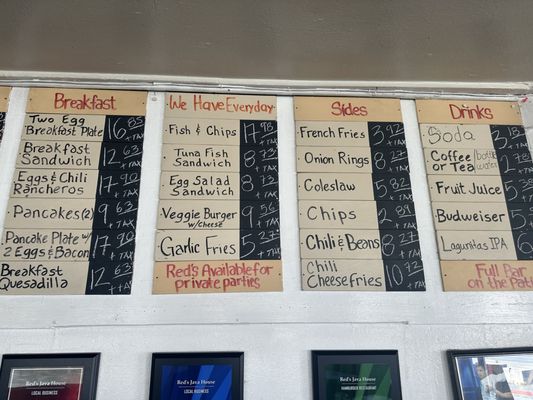 Breakfast
Two Egg
Breakfast Plate 16 85 + TAX
Breakfast
Sandwich 12 63 + TAX
Eggs & Chili
Rancheros 17 90 + TAX
Pancakes (2) 9 63 + TAX
Pancake Plate w/
2 Eggs & Bacon 17 90 + TAX
Breakfast
Quesadilla 12 63 + TAX
We Have Everyday
Fish & Chips 17 98 + TAX
Tuna Fish
Sandwich 8 73 + TAX
Egg Salad
Sandwich 8 73 + TAX
Veggie Burger
w/cheese 9 56 + TAX
Garlic Fries 5 27 + TAX
Red's Available for
private parties
Sides
French Fries 3 92 + TAX
Onion Rings 8 27 + TAX
Coleslaw 5 82 + TAX
Chips 2 89 + TAX
Chili & Beans 8 27 + TAX
Chili
Cheese Fries 10 42 + TAX
Drinks
Soda
Coffee
or Tea
Fruit Juice
Budweiser
Lagunitas IPA
Full Bar
on the Pati
Red's Java House
LOCAL BUSINESS
Red's Java House
LOCAL BUSINESS
Red's Java House
HAMBURGER RESTAURANT